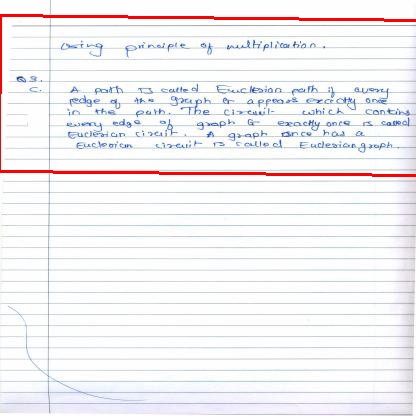 Using principle of multiplication.
Q3.
C. A path is called Euclerian path if every
edge of the graph G appears exactly once
in the path. The circuit which contains
every edge of graph G exactly once is called
Euclerian circuit. A graph once has a
Euclerian circuit is called Euclerian graph.